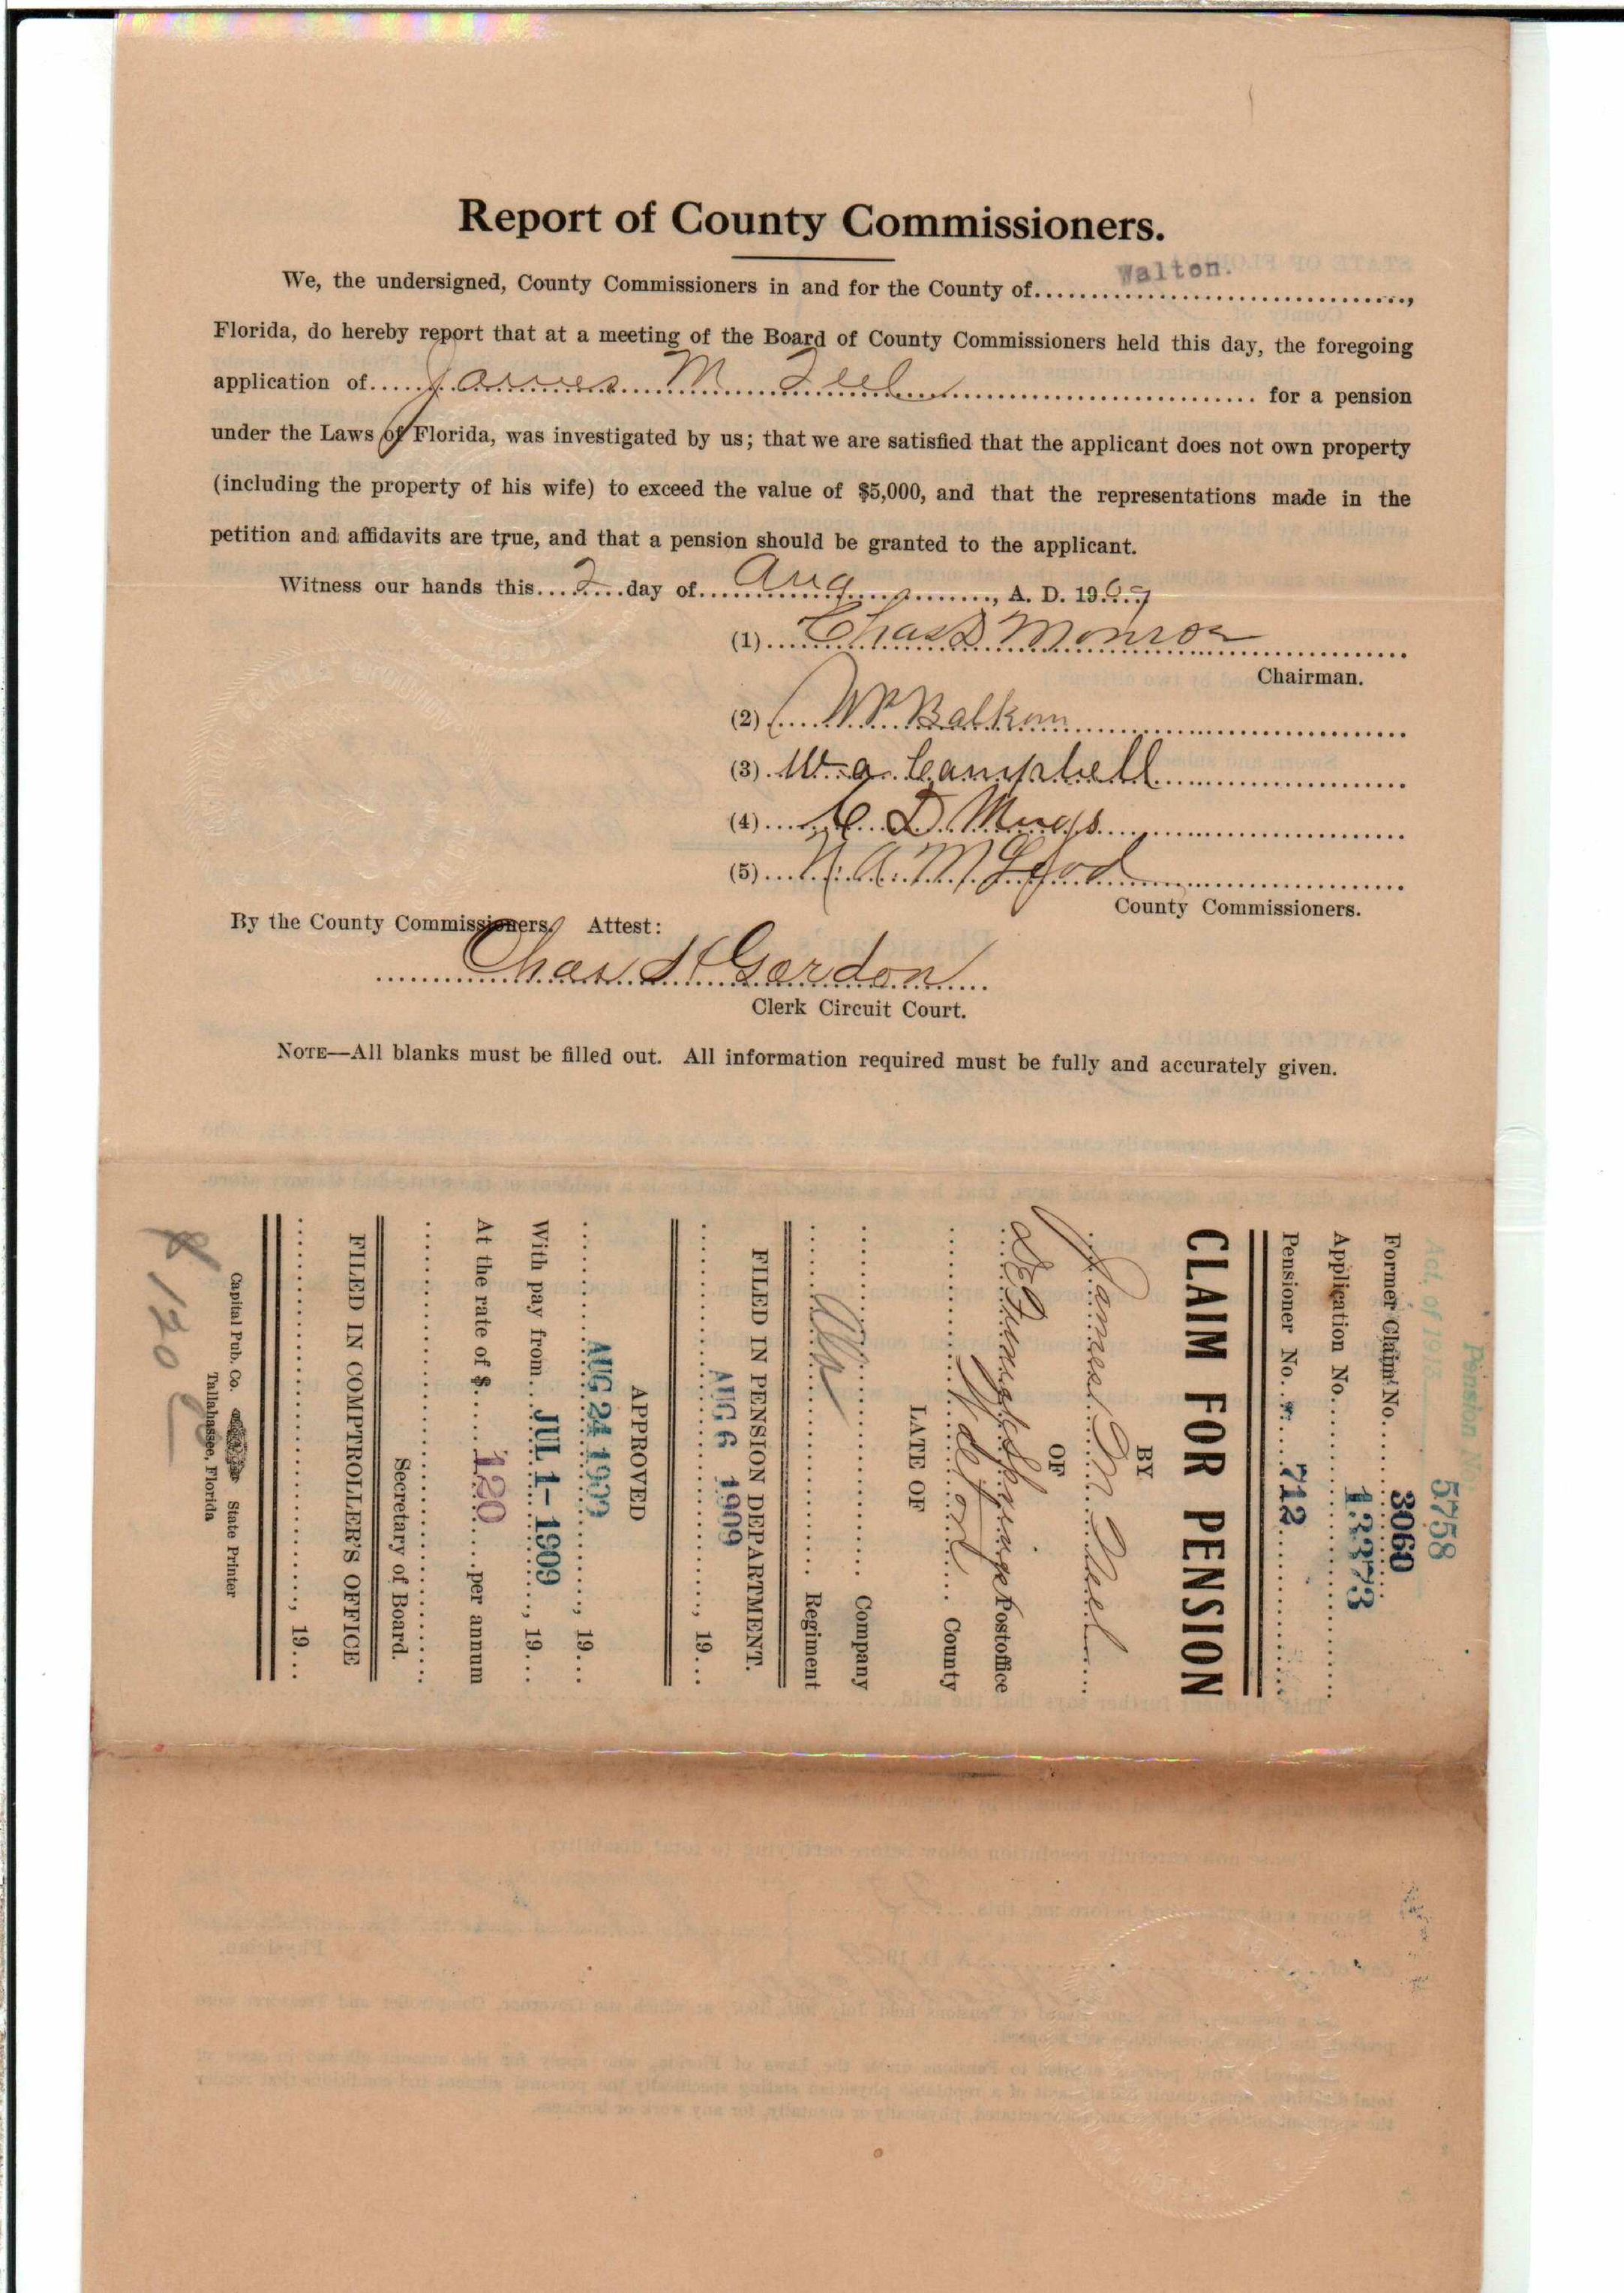 Report of County Commissioners.
We, the undersigned, County Commissioners in and for the County of Walton.,
Florida, do hereby report that at a meeting of the Board of County Commissioners held this day, the foregoing
application of James M. for a pension
under the Laws of Florida, was investigated by us; that we are satisfied that the applicant does not own property
(including the property of his wife) to exceed the value of $5,000, and that the representations made in the
petition and affidavits are true, and that a pension should be granted to the applicant.
Witness our hands this 2 day of Aug, A. D. 1909
(1) Chas D Monroe
Chairman.
(2) Balkom
(3) W a Campbell
(4) C D
(5) N. A. McLeod
County Commissioners.
By the County Commissioners. Attest:
Chas H Gordon
Clerk Circuit Court.
NOTE—All blanks must be filled out. All information required must be fully and accurately given.
Pension No. 5758
Act, of 1913
Former Claim No. 3060
Application No. 13373
Pensioner No. 712
CLAIM FOR PENSION
BY
James M
OF
DeFuniak Springs Postoffice
Walton County
LATE OF
Company
Ala Regiment
FILED IN PENSION DEPARTMENT.
AUG 6 1909, 19
APPROVED
AUG 24 1909, 19
With pay from JUL 1-1909, 19
At the rate of $ 120 per annum
Secretary of Board.
FILED IN COMPTROLLER'S OFFICE
, 19
Capital Pub. Co. State Printer
Tallahassee, Florida
$ 120